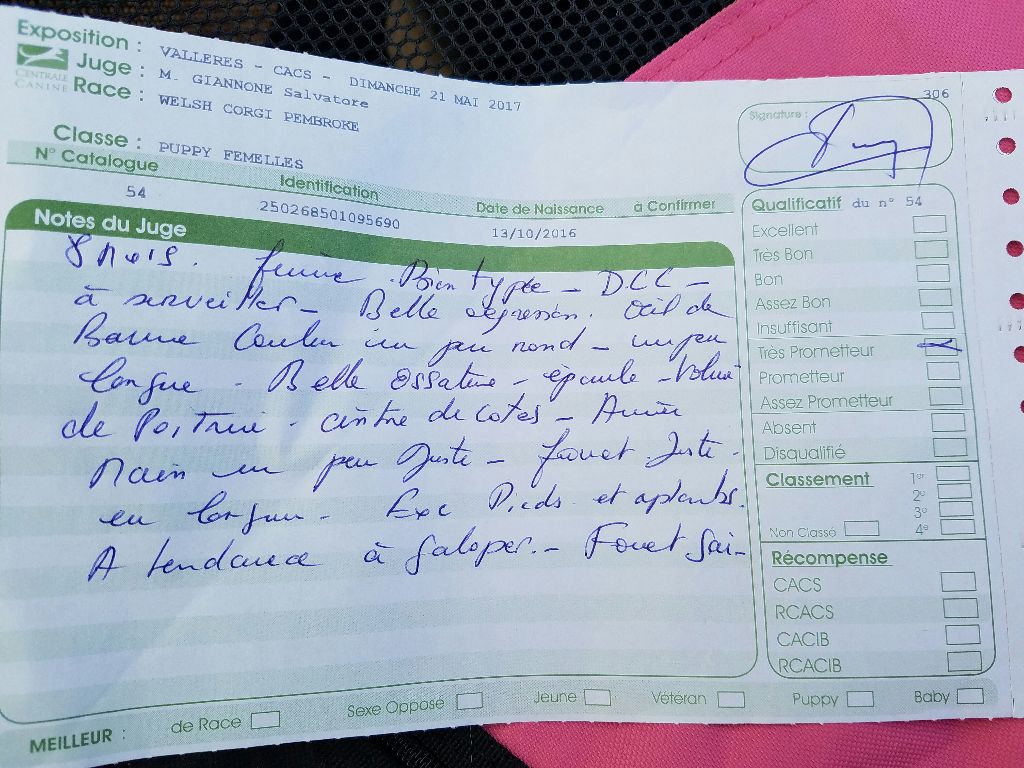 Exposition : VALLERES - CACS - DIMANCHE 21 MAI 2017
Juge : M. GIANNONE Salvatore
CENTRALE CANINE
Race : WELSH CORGI PEMBROKE
306
Signature :
Classe : PUPPY FEMELLES
N° Catalogue Identification Date de Naissance à Confirmer
54 250268501095690 13/10/2016
Notes du Juge
8 Mois. femme. Bien typée - D.CC -
à surveiller - Belle expression. Oeil de
Bonne Couleur un peu rond - un peu
longue - Belle Ossature - épaule - Volume
de Poitrine - cintre de cotes - Avant
Main un peu Juste - fouet Juste -
en longueur - Exc Pieds et aplombs.
A tendance à galoper. - Fouet Gai -
Qualificatif du n° 54
Excellent
Très Bon
Bon
Assez Bon
Insuffisant
Très Prometteur
Prometteur
Assez Prometteur
Absent
Disqualifié
Classement 1er
2e
3e
Non Classé 4e
Récompense
CACS
RCACS
CACIB
RCACIB
MEILLEUR : de Race Sexe Opposé Jeune Vétéran Puppy Baby